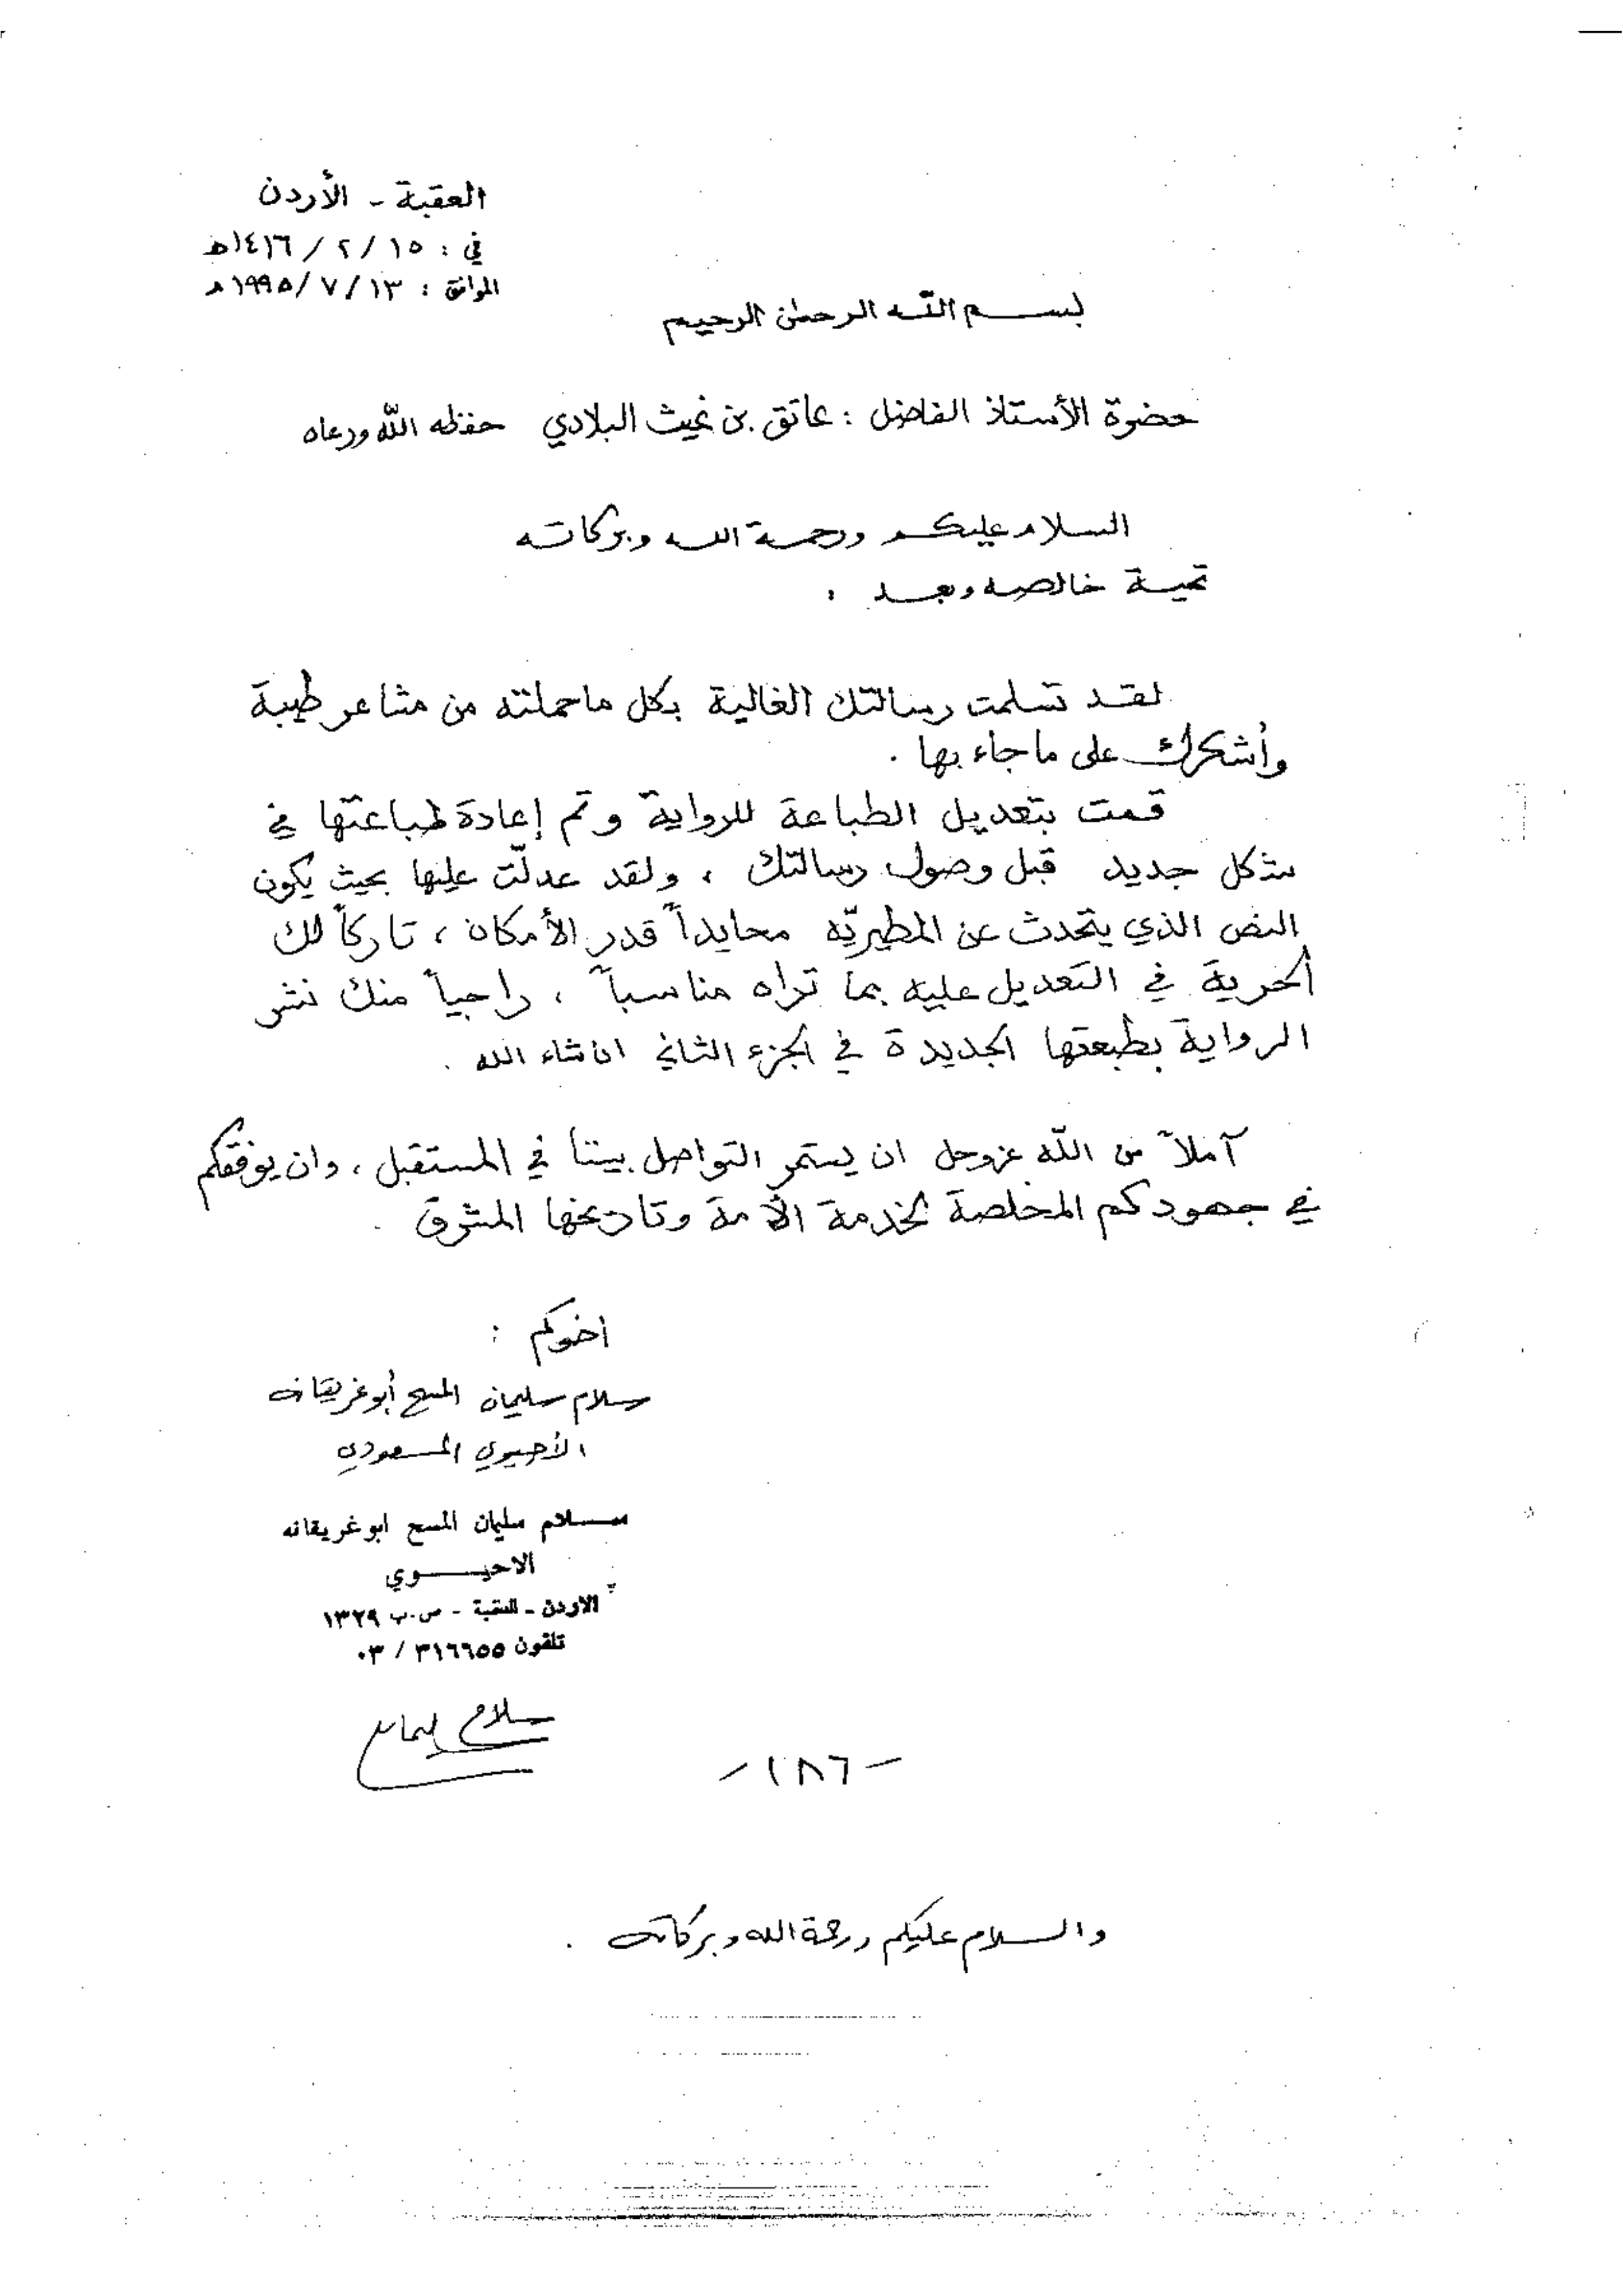 العقبة - الأردن
في : ١٥ / ٢ / ١٤١٦ه
الموافق : ١٣ / ٧ / ١٩٩٥م
بسم الله الرحمن الرحيم
حضرة الأستاذ الفاضل : عاتق بن غيث البلادي حفظه الله ورعاه
السلام عليكم ورحمة الله وبركاته
تحية خالصه وبعد ،
لقد تسلمت رسالتك الغالية بكل ما حملته من مشاعر طيبة
وأشكرك على ما جاء بها .
قمت بتعديل الطباعة للرواية وتم إعادة طباعتها في
شكل جديد قبل وصول رسالتك ، ولقد عدلّت عليها بحيث يكون
النص الذي يتحدث عن المطيريّه محايداً قدر الأمكان ، تاركاً لك
الحرية في التعديل عليه بما تراه مناسباً ، راجياً منك نشر
الرواية بطبعتها الجديدة في الجزء الثاني ان شاء الله .
آملاً من الله عزوجل ان يستمر التواصل بيننا في المستقبل ، وان يوفقكم
في جهودكم المخلصة لخدمة الأمة وتاريخها المشرق .
اخوكم :
سلام سليمان المسح أبوغريقانه
الأحيوي المسعودي
سلام سليمان المسح ابو غريقانه
الاحيوي
الاردن - العقبة - ص.ب ١٣٢٩
تلفون ٣١٦٦٥٥ / ٠٣
سلام سليمان
- ١٨٦ -
والسلام عليكم ورحمة الله وبركاته .